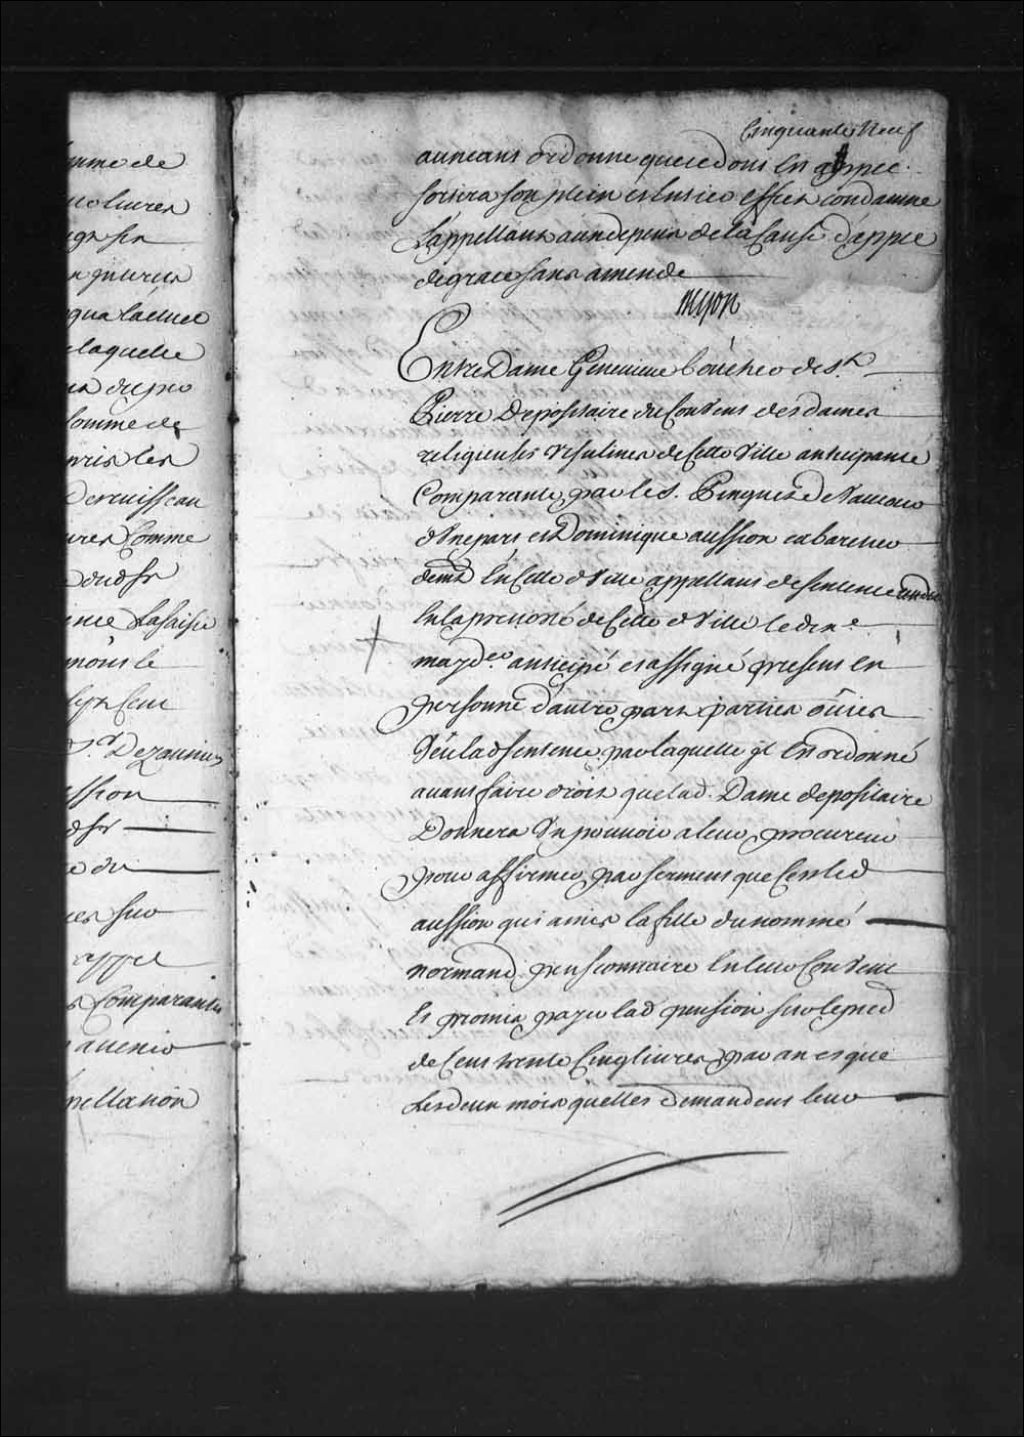 mme de
livres
qua laditte
laquelle
comme de
pris les
Deruisseau
Comme
dud sr
ince & la saisie
moins le
sr Dezaunier
ssion
dsr
du
ces sur
appel
Comparante
avenir
pellation
Cinquante Neuf
au neant ordonne que ce dont est appel
sortira son plein et entier effet condamne
L'appellant aux depens de la Cause d'appel
de grace sans amende
Entre Dame Genevieve boucher de St
Pierre Depositaire du Couvent des dames
religieuses Ursulines de Cette Ville anticipante
Comparante par le S. Pinguet de Vaucour
d'Une part et Dominique aussion cabaretier
demt En Cette Ville appellant de sentence rendue
En la prevosté de Cette Ville le dixe
may der anticipé et assigné present En
personne d'autre part parties ouies
Veu lad sentence par laquelle il Est ordonné
avant faire droit que lad. Dame depositaire
Donnera Un pouvoir a leur procureur
pour affirmer par serment que C'est led
aussion qui a mis la fille du nommé
normand pensionnaire En leur Couvent
Et promis payer lad pension sur le pied
de Cent trente Cinq livres par an et que
Les deux mois qu'elles demandent leur